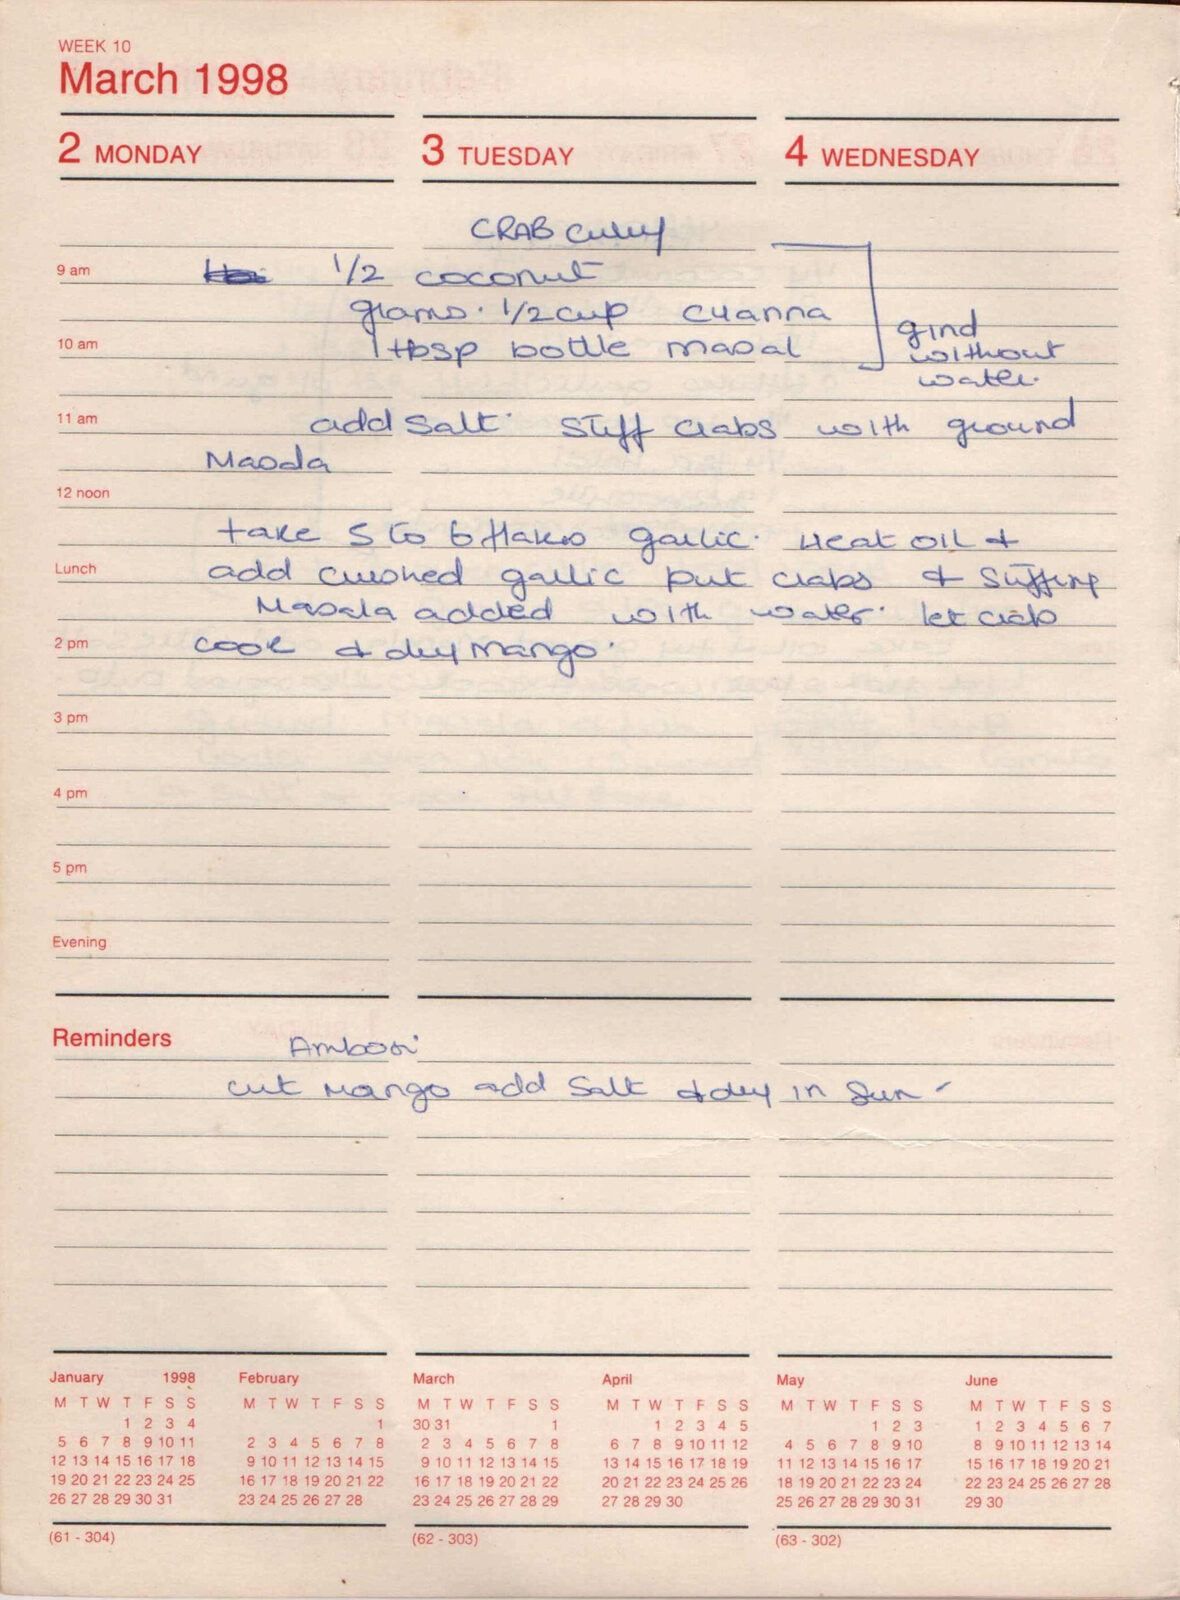 WEEK 10
March 1998
2 MONDAY
3 TUESDAY
4 WEDNESDAY
CRAB Curry
9 am
1/2 coconut
grams. 1/2 cup channa
10 am
1 tbsp bottle masal
gind
without
water.
11 am
add salt. Stuff crabs with ground
Masala
12 noon
take 5 to 6 flakes garlic. Heat oil &
Lunch
add crushed garlic put crabs & Stuffing
Masala added with water. let crab
2 pm
cook & dry mango.
3 pm
4 pm
5 pm
Evening
Reminders
Ambosi
cut Mango add Salt & dry in Sun
January 1998
M T W T F S S
1 2 3 4
5 6 7 8 9 10 11
12 13 14 15 16 17 18
19 20 21 22 23 24 25
26 27 28 29 30 31
February
M T W T F S S
1
2 3 4 5 6 7 8
9 10 11 12 13 14 15
16 17 18 19 20 21 22
23 24 25 26 27 28
March
M T W T F S S
30 31 1
2 3 4 5 6 7 8
9 10 11 12 13 14 15
16 17 18 19 20 21 22
23 24 25 26 27 28 29
April
M T W T F S S
1 2 3 4 5
6 7 8 9 10 11 12
13 14 15 16 17 18 19
20 21 22 23 24 25 26
27 28 29 30
May
M T W T F S S
1 2 3
4 5 6 7 8 9 10
11 12 13 14 15 16 17
18 19 20 21 22 23 24
25 26 27 28 29 30 31
June
M T W T F S S
1 2 3 4 5 6 7
8 9 10 11 12 13 14
15 16 17 18 19 20 21
22 23 24 25 26 27 28
29 30
(61 - 304)
(62 - 303)
(63 - 302)